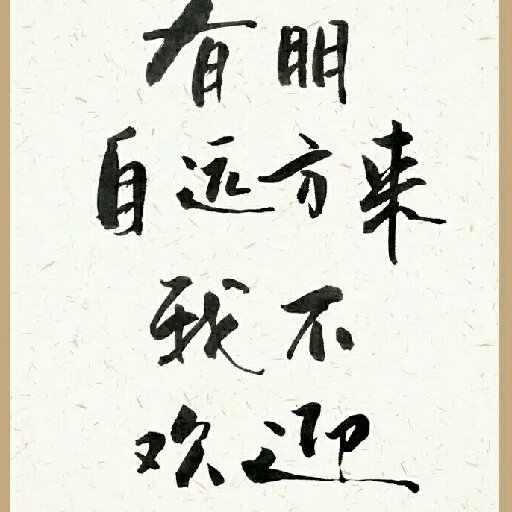 有朋
自远方来
我不
欢迎